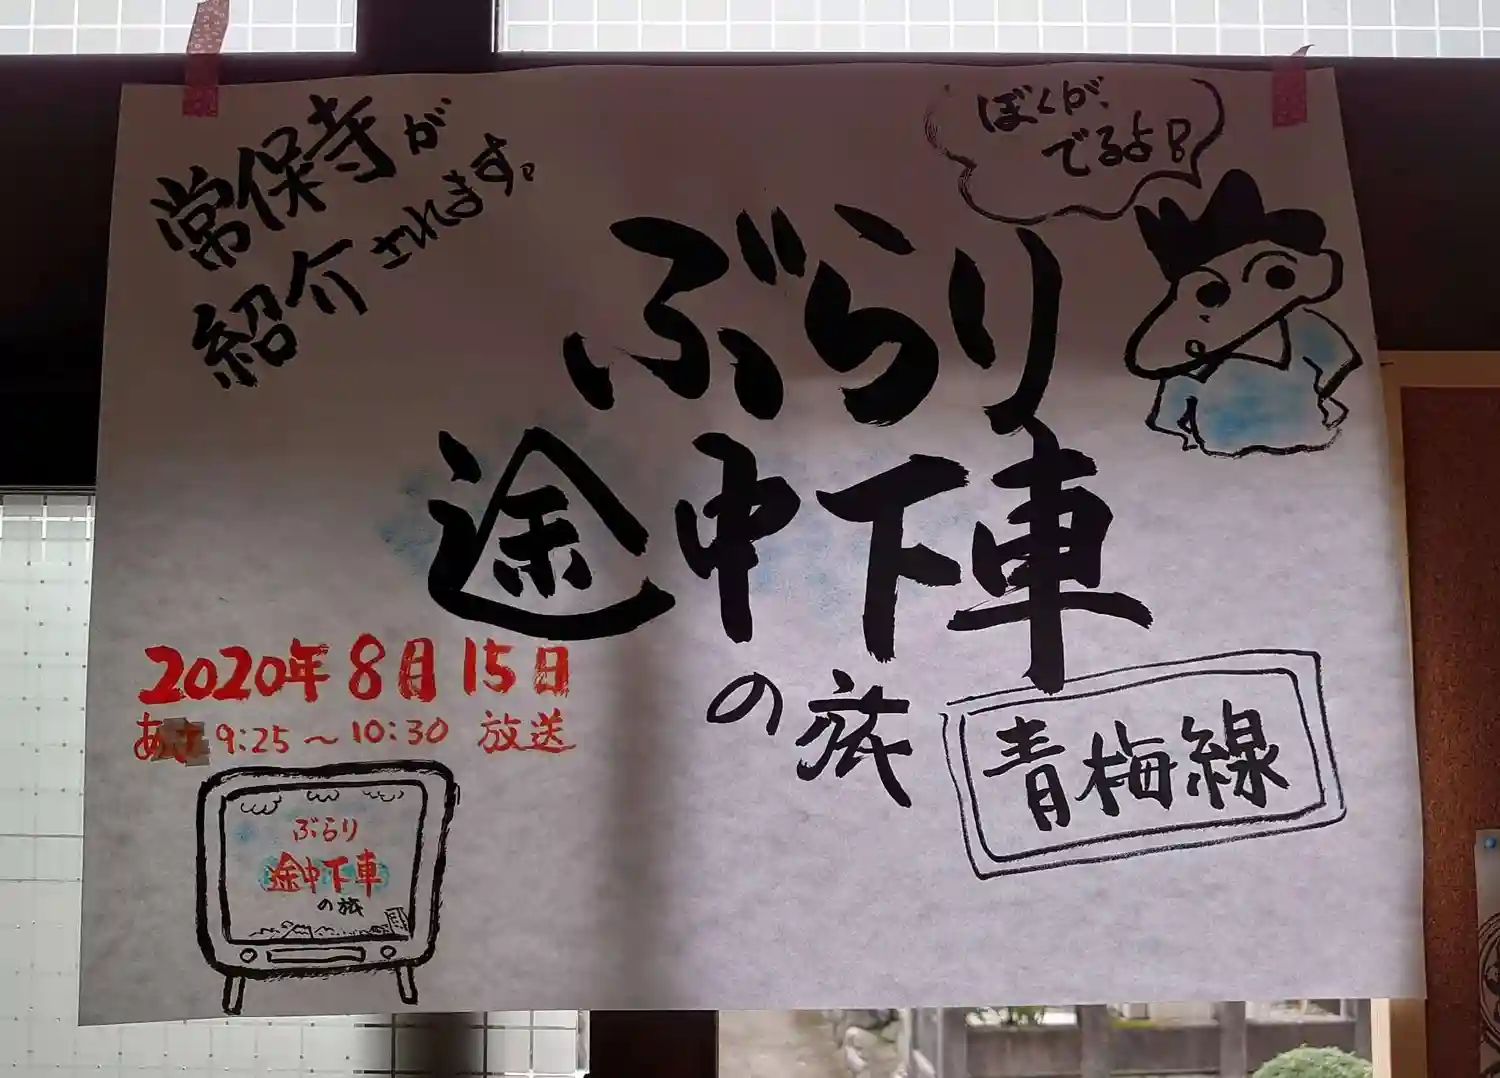 常保寺が
紹介されます。
ぼくが、
でるよ!!
ぶらり
途中下車
の旅
青梅線
2020年8月15日
あさ 9:25～10:30 放送
ぶらり
途中下車
の旅